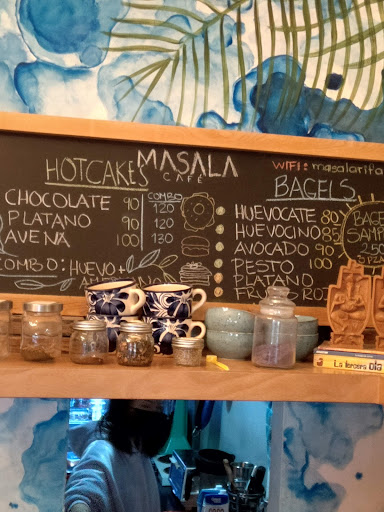 MASALA
CAFÉ
HOTCAKES
COMBO
CHOCOLATE 90 120
PLATANO 90 120
AVENA 100 130
COMBO: HUEVO +
WIFI: masalarita
BAGELS
HUEVOCATE 80
HUEVOCINO 85
AVOCADO 90
PESTO
PLATANO
BAGEL
La tercera